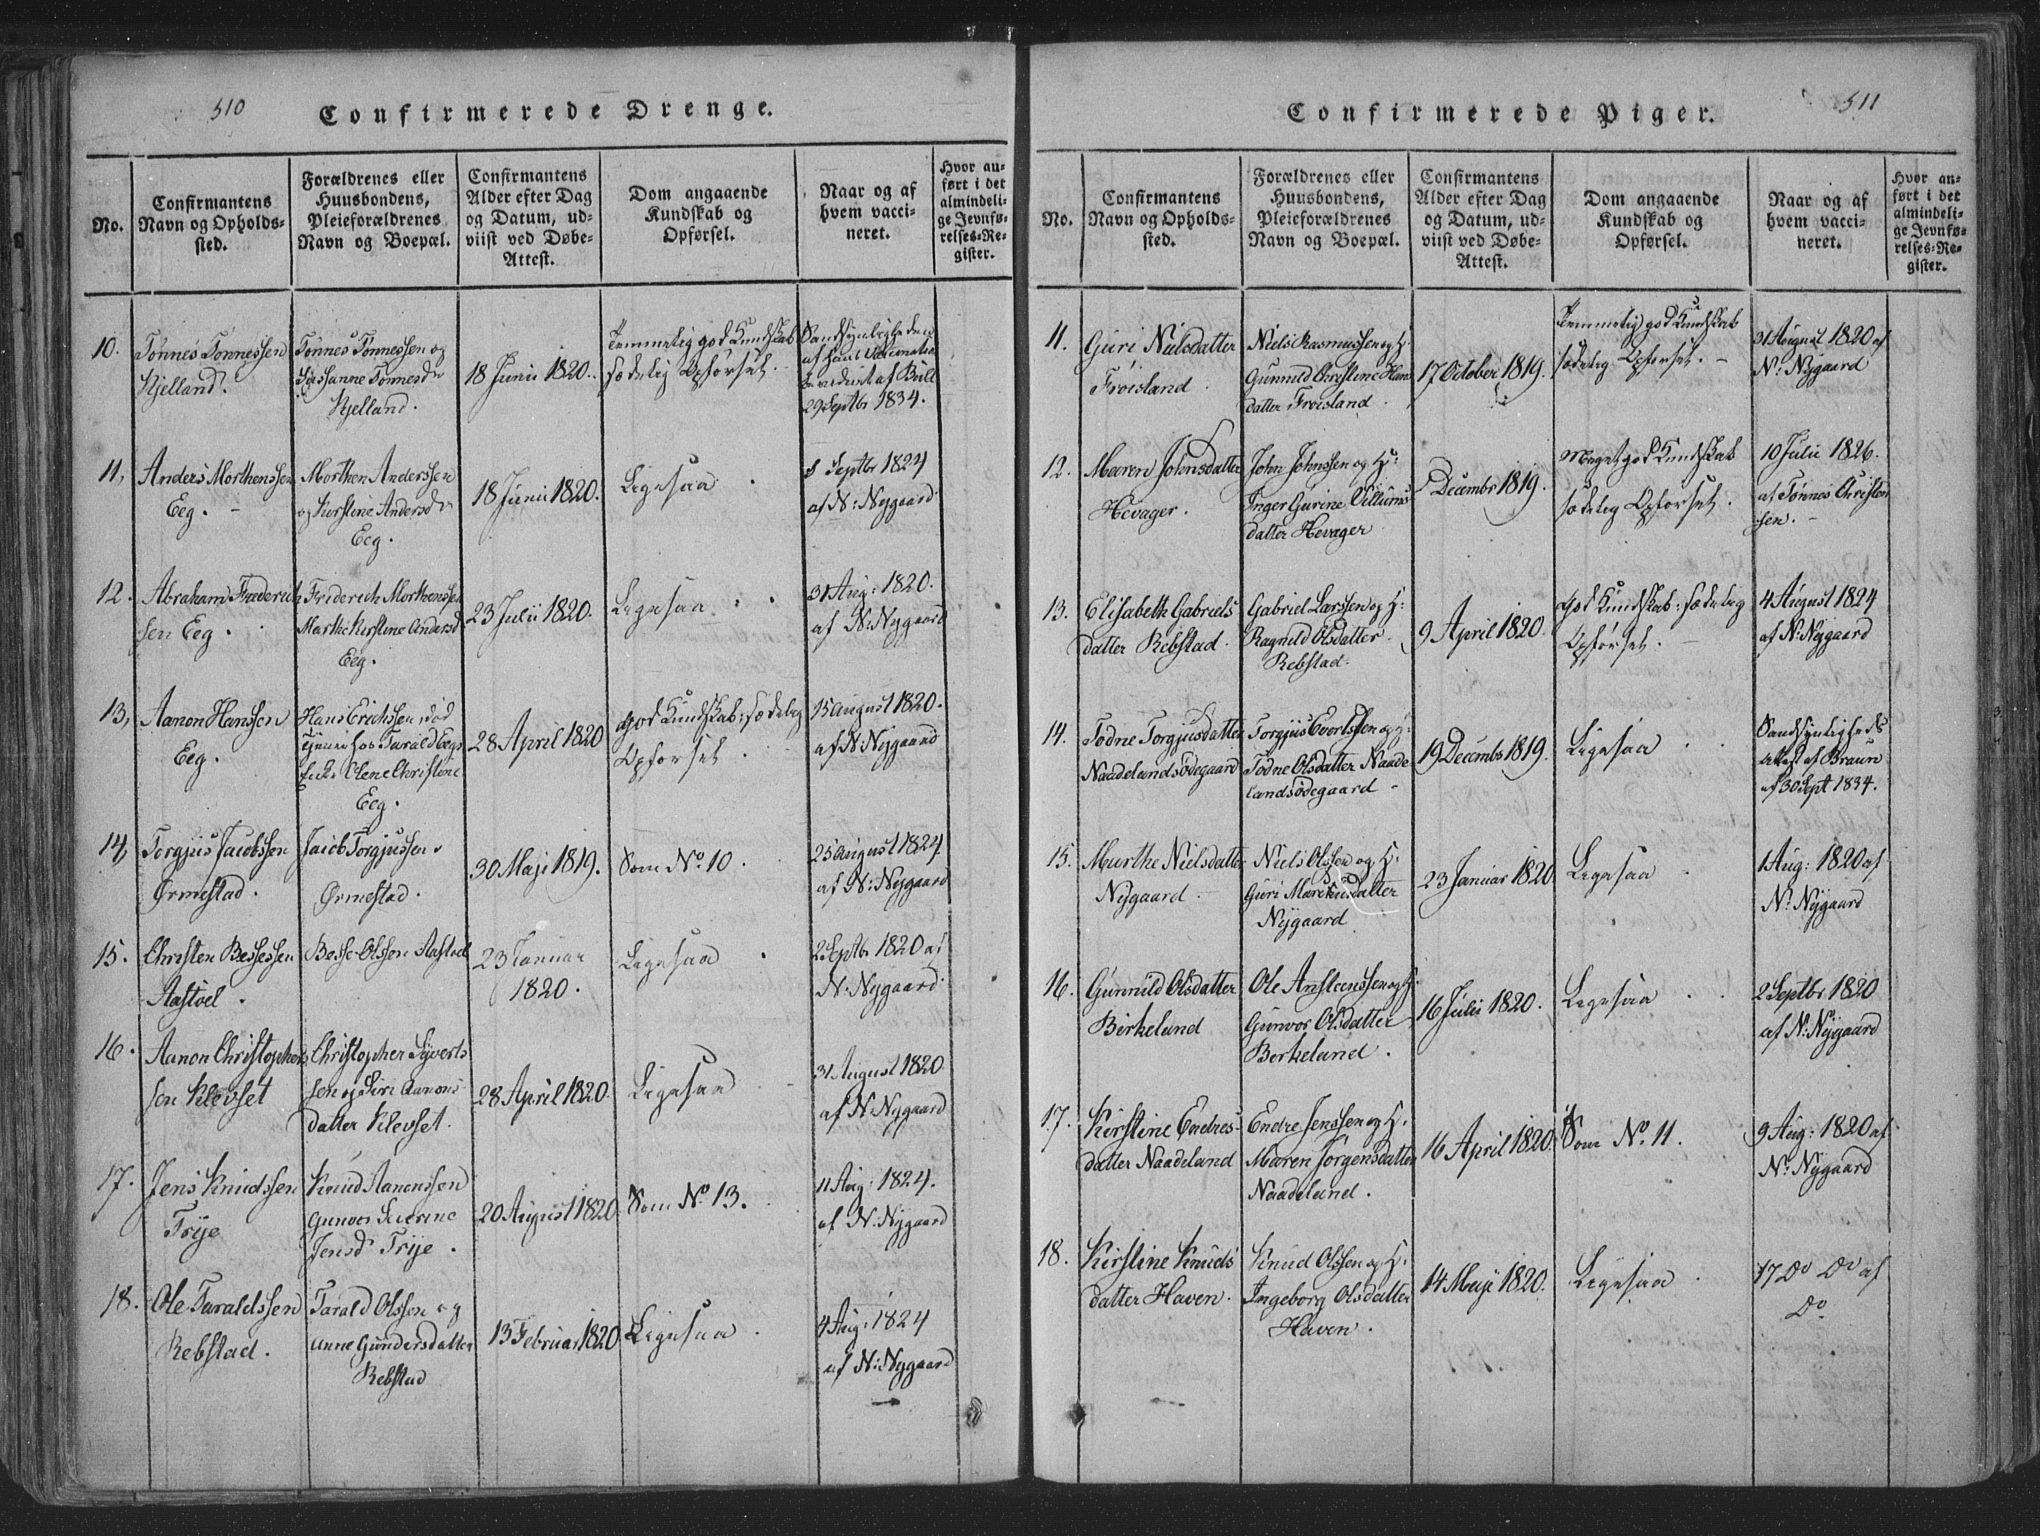 510
Confirmerede Drenge.
No.
Confirmantens
Navn og Opholds-
sted.
Forældrenes eller
Huusbondens,
Pleieforældrenes
Navn og Boepæl.
Confirmantens
Alder efter Dag
og Datum, ud-
viist ved Døbe-
Attest.
Dom angaaende
Kundskab og
Opførsel.
Naar og af
hvem vacci-
neret.
Hvor an-
ført i det
almindeli-
ge Jevnfø-
relses-Re-
gister.
10.
Tønnes Tønnessen
Kjelland.
Tønnes Tønnessen og
Tønnesd
Kjelland.
18 Junii 1820.
Temmelig god Kundskab
sædelig Opførsel.
Sandsynligheden
af havt Vaccination
af Bull
29 Septbr 1834.
11,
Anders Morthenssen
Eeg.
Morthen Anderssen
og Kirstine Andersd
Eeg.
18 Junii 1820.
Ligesaa
8 Septbr 1824
af N: Nygaard
12.
Abraham Frederich
sen Eeg.
Friderich Morthenssen
Marthe Kirstine Andersd
Eeg.
23 Julii 1820.
Ligesaa
31 Aug: 1820.
af N: Nygaard
13,
Aanon Hanssen
Eeg.
Hans Erichssen, død
hos Tarald Eegs
Enke Elene Christine
Eeg.
28 April 1820
god Kundskab: sædelig
Opførsel
15 August 1820.
af N: Nygaard
14,
Torgjus Jacobssen
Ørmestad.
Jacob Torgjussen
Ørmestad.
30 Maji 1819.
Som No. 10.
25 August 1824
af N: Nygaard
15.
Christen Bessessen
Aastvel.
Besse Olssen Aastvel
23 Januar
1820.
Ligesaa
2 Septbr 1820 af
N: Nygaard.
16.
Aanon Christopher
sen Klevset
Christopher Syverts
sen og Siri Aanons
datter Klevset.
28 April 1820.
Ligesaa
31 August 1820
af N: Nygaard
17.
Jens Knudssen
Frije
Knud Aanonssen
Gunvor Severine
Jensd Frije.
20 August 1820
Som No. 13.
11 Aug: 1824.
af N. Nygaard
18.
Ole Taraldssen
Rebstad.
Tarald Olssen og
Anne Gundersdatter
Rebstad
13 Februar 1820
Ligesaa
4 Aug: 1824
af N: Nygaard
511
Confirmerede Piger.
No.
Confirmantens
Navn og Opholds-
sted.
Forældrenes eller
Huusbondens,
Pleieforældrenes
Navn og Boepæl.
Confirmantens
Alder efter Dag
og Datum, ud-
viist ved Døbe-
Attest.
Dom angaaende
Kundskab og
Opførsel.
Naar og af
hvem vacci-
neret.
Hvor an-
ført i det
almindeli-
ge Jevnfø-
relses-Re-
gister.
11.
Guri Nielsdatter
Frøisland
Niels Rasmussen og H:
Gunnild Christine Hans
datter Frøisland.
17 October 1819.
Temmelig god Kundskab
sædelig Opførsel.
31 August 1820 af
N: Nygaard
12.
Maren Johnsdatter
Hevager.
John Johnssen og H:
Inger Gurine Villums
datter Hevager
Decembr 1819.
Meget god Kundskab
sædelig Opførsel.
10 Julii 1826.
af Tønnes Christen
sen.
13.
Elisabeth Gabriels
datter Rebstad.
Gabriel Larssen og H:
Ragnild Olsdatter
Rebstad.
9 April 1820.
god Kundskab: sædelig
Opførsel.
4 August 1824
af N: Nygaard
14.
Todne Torgjusdatter
Naadelandsødegaard
Torgjus Evertssen og H:
Todne Olsdatter Naade
landsødegaard
19 Decembr 1819.
Ligesaa
Sandsynligheds
Attest af Braun
af 30 Sept 1834.
15.
Marthe Nielsdatter
Nygaard
Niels Olssen og H:
Guri Marcusdatter
Nygaard
23 Januar 1820
Ligesaa
1 Aug: 1820 af
N: Nygaard
16.
Gunnild Olsdatter
Birkeland
Ole Ansteenssen og H:
Gunvor Olsdatter
Birkeland.
16 Julii 1820.
Ligesaa
2 Septbr 1820
af N: Nygaard
17.
Kirstine Endres-
datter Naadeland
Endre Jenssen og H:
Maren Jørgensdatter
Naadeland.
16 April 1820.
Som No. 11.
9 Aug: 1820 af
N: Nygaard
18.
Kirstine Knuds
datter Haven.
Knud Olssen og H:
Ingeborg Olsdatter
Haven.
14 Maji 1820.
Ligesaa
17 Do Do af
Do